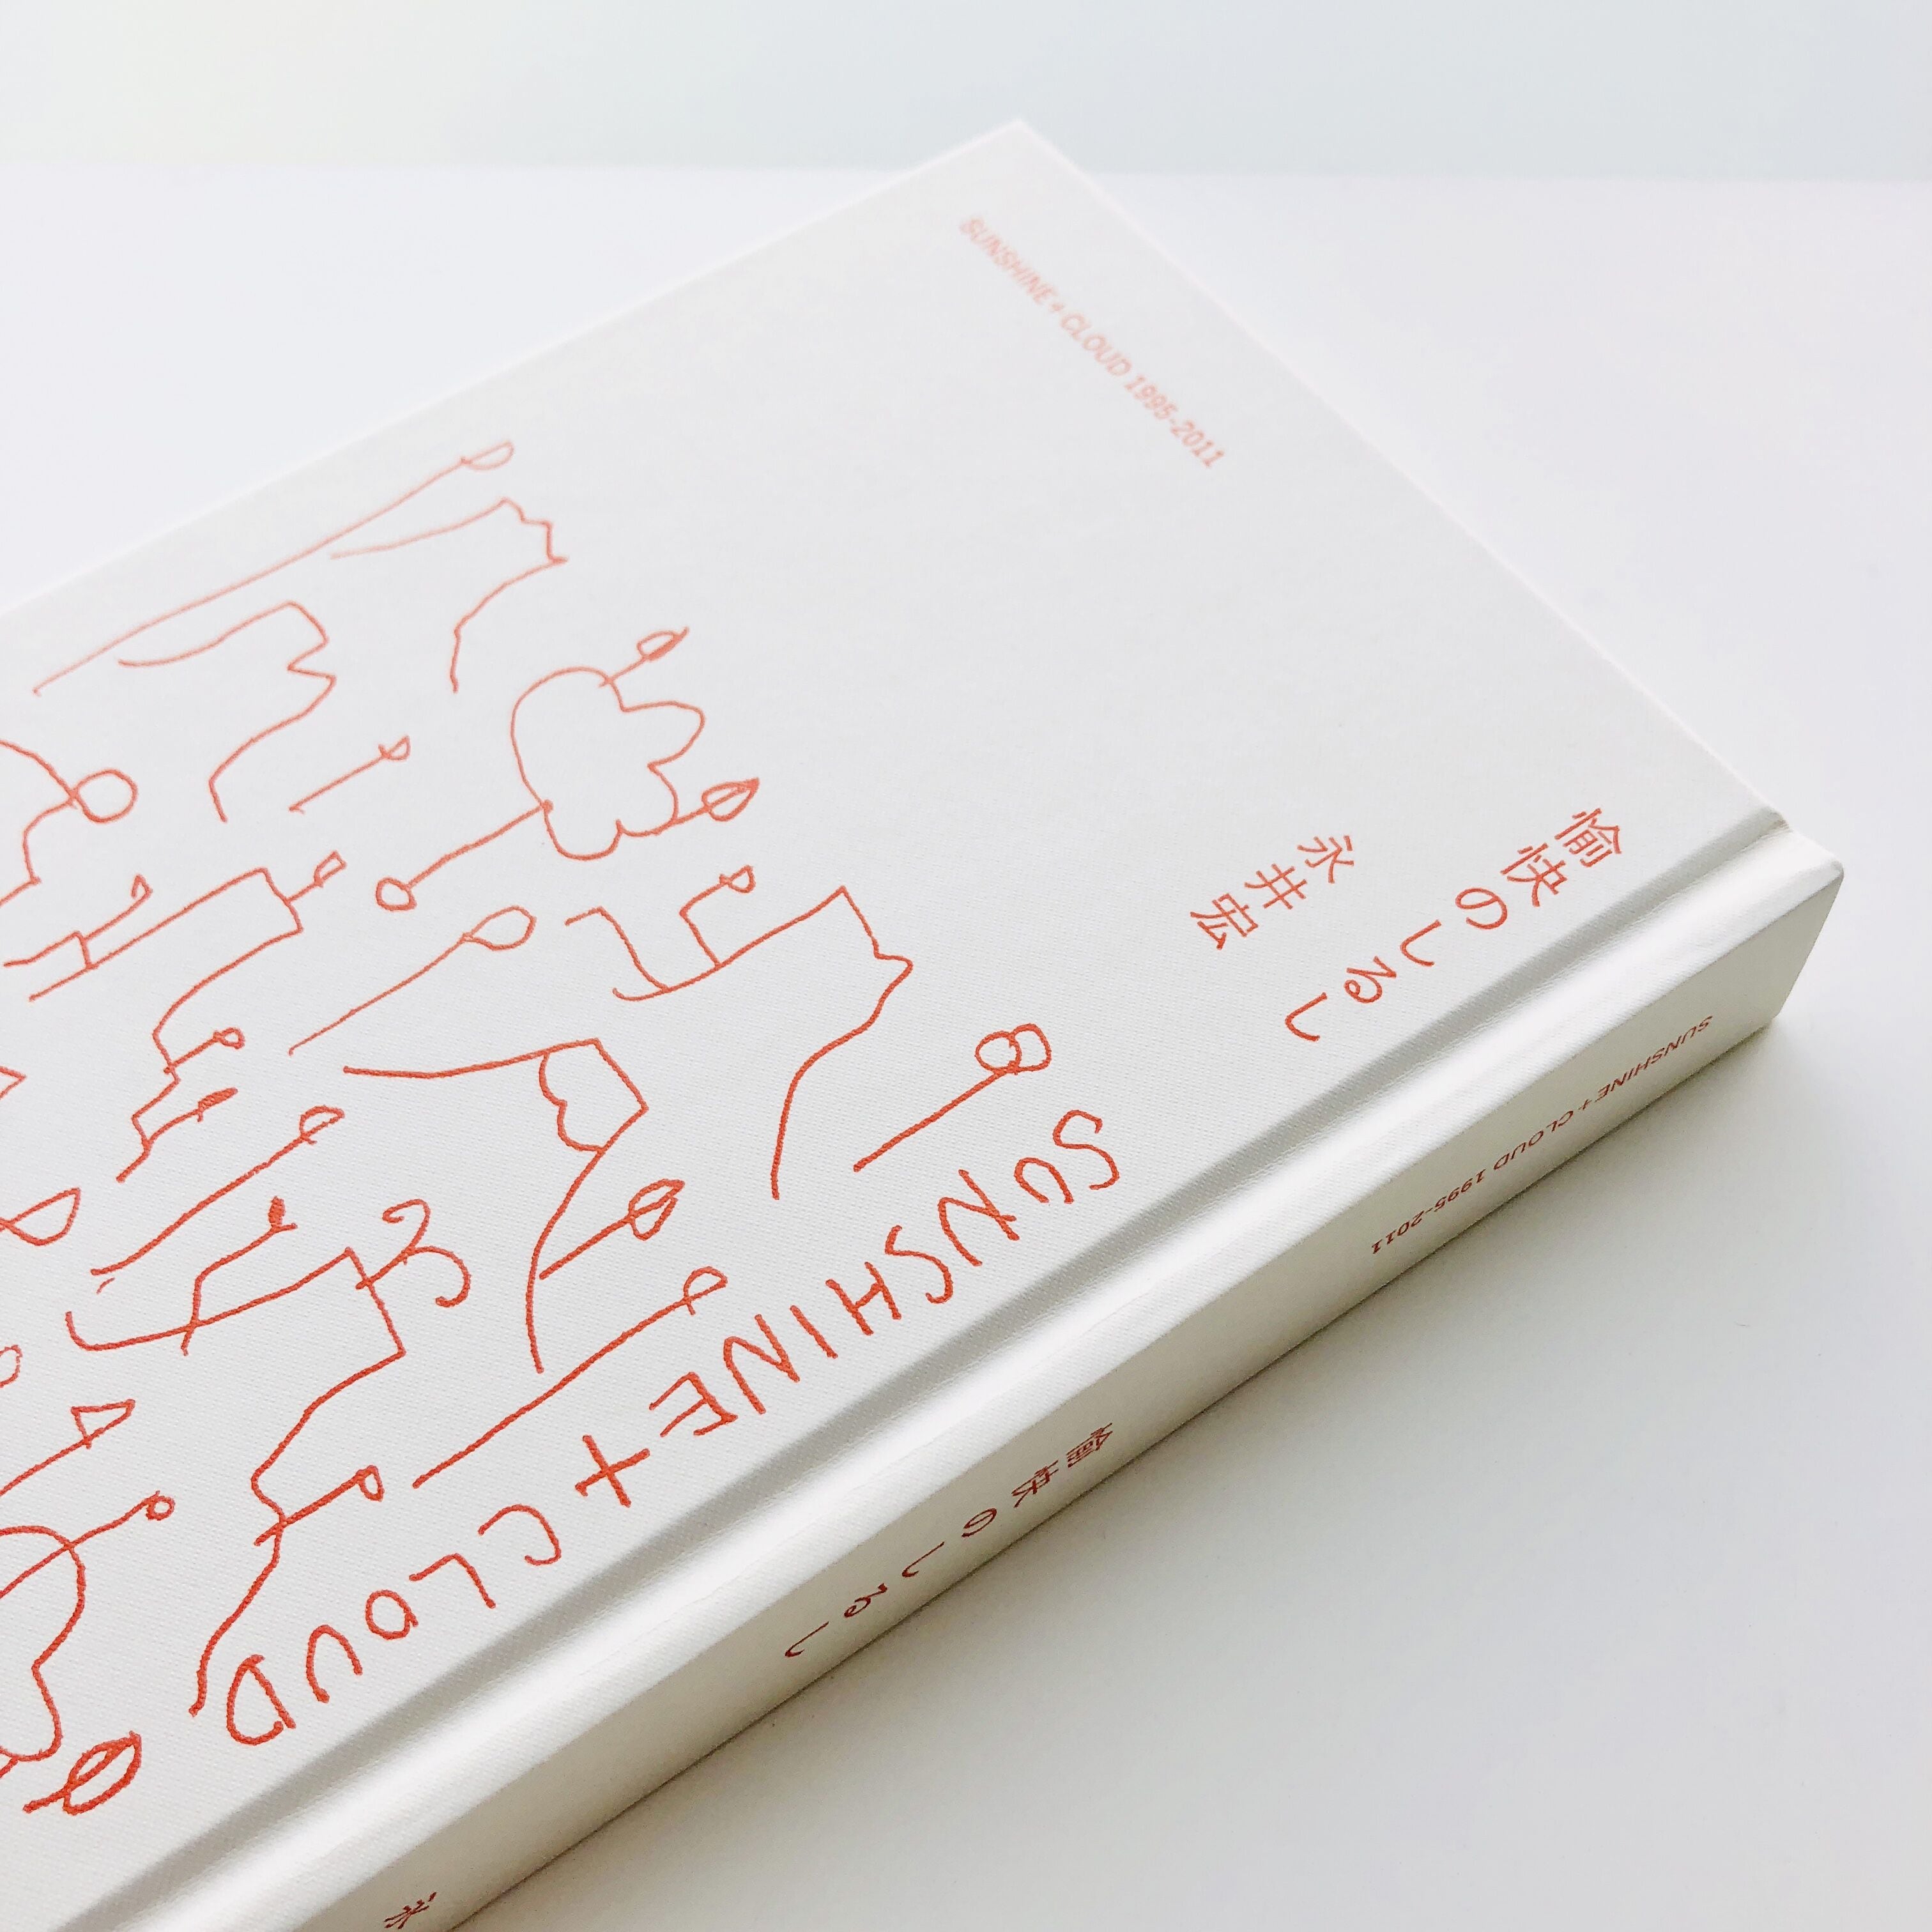 SUNSHINE+CLOUD 1995-2011
愉快のしるし
永井宏
SUNSHINE + CLOUD
SUNSHINE+CLOUD 1995-2011
愉快のしるし
永